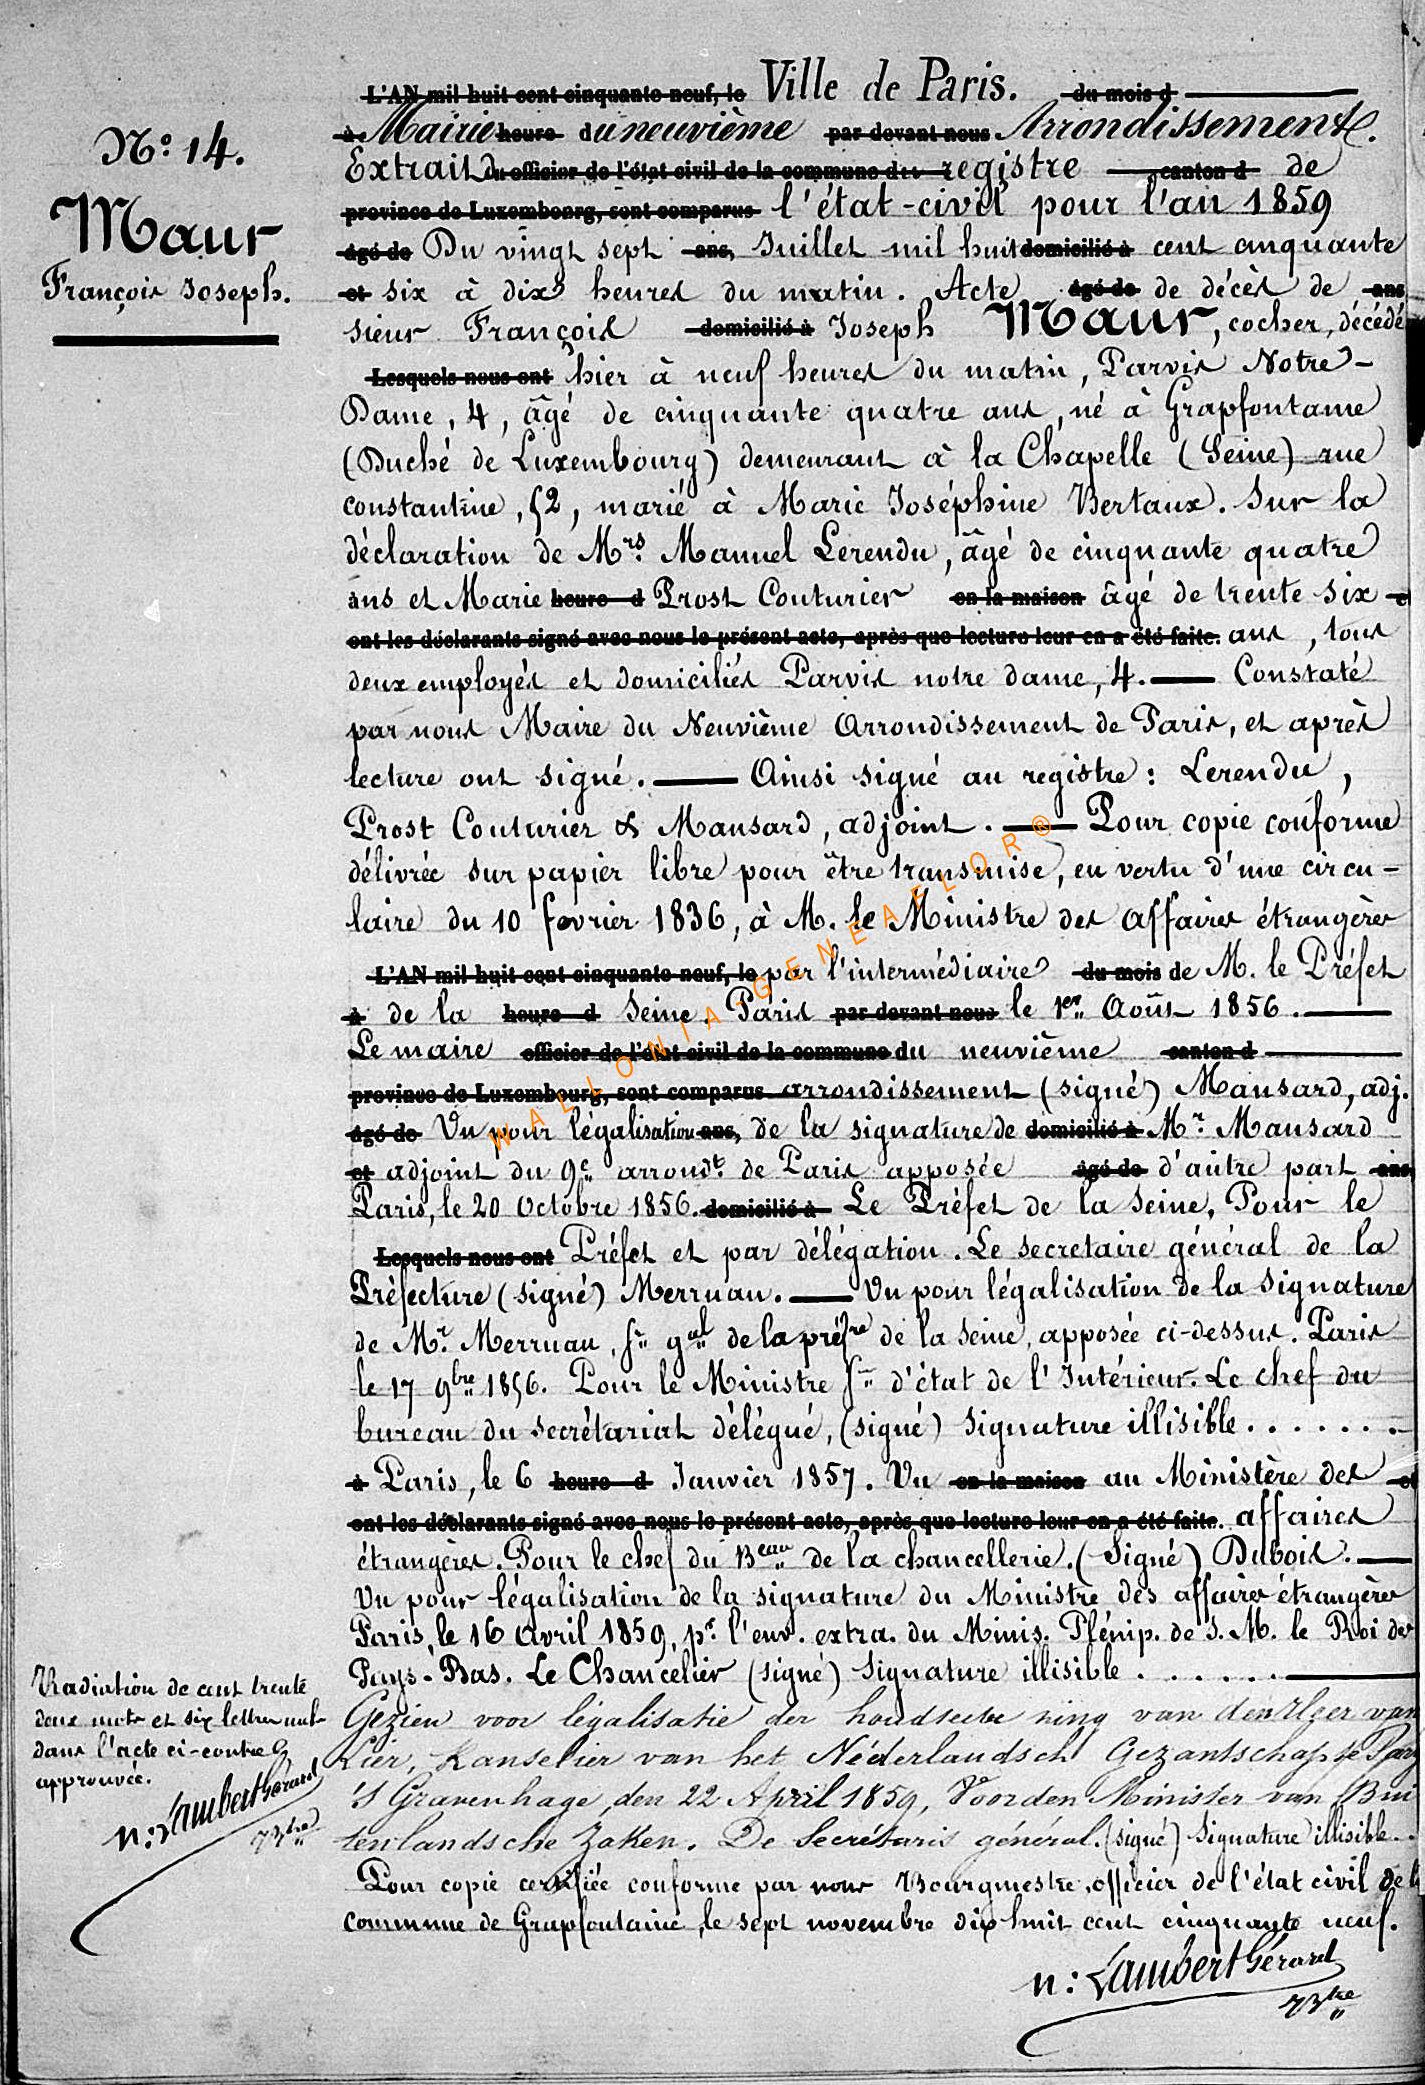 N.º 14.
Maur
François Joseph.
L'AN mil huit cent cinquante-neuf, le Ville de Paris. du mois d
à Mairie heure du neuvième par devant nous Arrondissement.
Extrait du officier de l'état civil de la commune de registre canton d de
province de Luxembourg, sont comparus l'état-civil pour l'an 1859
âgé de Du vingt sept ans, Juillet mil huit domicilié à cent cinquante
et six à dix heures du matin. Acte âgé de de décès de ans
sieur François domicilié à Joseph Maur, cocher, décédé
Lesquels nous ont hier à neuf heures du matin, Parvis Notre-
Dame, 4, âgé de cinquante quatre ans, né à Grapfontaine
(Duché de Luxembourg) demeurant à la Chapelle (Seine) rue
constantine, 52, marié à Marie Joséphine Bertaux. Sur la
déclaration de Mrs. Manuel Lerendu, âgé de cinquante quatre
ans et Marie heure d Prost Couturier en la maison âgé de trente six et
ont les déclarants signé avec nous le présent acte, après que lecture leur en a été faite. ans, tous
deux employés et domiciliés Parvis notre dame, 4. — Constaté
par nous Maire du Neuvième Arrondissement de Paris, et après
lecture ont signé. — Ainsi signé au registre : Lerendu,
Prost Couturier & Mansard, adjoint. — Pour copie conforme
délivrée sur papier libre pour être transmise, en vertu d'une circu-
laire du 10 février 1836, à M. le Ministre des affaires étrangères
L'AN mil huit cent cinquante-neuf, le par l'intermédiaire du mois de M. le Préfet
à de la heure d Seine. Paris par devant nous le 1er. Août 1856. —
Le maire officier de l'état civil de la commune du neuvième canton d
province de Luxembourg, sont comparus arrondissement (signé) Mansard, adj.
âgé de Vu pour légalisation ans, de la signature de domicilié à Mr. Mansard
et adjoint du 9e. arrondt. de Paris apposée âgé de d'autre part ans
Paris, le 20 Octobre 1856. domicilié à Le Préfet de la Seine, Pour le
Lesquels nous ont Préfet et par délégation. Le secretaire général de la
Préfecture (signé) Merruau. — Vu pour légalisation de la signature
de Mr. Merruau, gal de la préfre de la Seine, apposée ci-dessus. Paris
le 17 9bre 1856. Pour le Ministre d'état de l'Intérieur. Le chef du
bureau du secrétariat délégué, (signé) signature illisible. . . . . . .
à Paris, le 6 heure d Janvier 1857. Vu en la maison au Ministère des et
ont les déclarants signé avec nous le présent acte, après que lecture leur en a été faite. affaires
étrangères. Pour le chef du Beau de la chancellerie. (Signé) Dubois. —
Vu pour légalisation de la signature du Ministre des affaires étrangères
Paris, le 16 avril 1859, pr. l'env. extra. du Minis. Plénip. de S. M. le Roi des
Pays-Bas. Le Chancelier (signé) signature illisible . . . . . . —
Gezien voor légalisatie der van den Heer van
Lier, Kanselier van het Néderlandsch Gezantschap te
'S Gravenhage, den 22 April 1859, Voor den Minister van Bui
tenlandsche Zaken. De Secrétaris général. (signé) signature illisible..
Pour copie certifiée conforme par nous Bourgmestre, officier de l'état civil de la
commune de Grapfontaine, le sept novembre dix huit cent cinquante neuf.
n: Lambert Gérard
Bstre
Radiation de cent trente
deux mots et six lettres nuls
dans l'acte ci-contre
approuvée.
n: Lambert Gérard
Bstre
WALLONIA-GENEAFLOR®